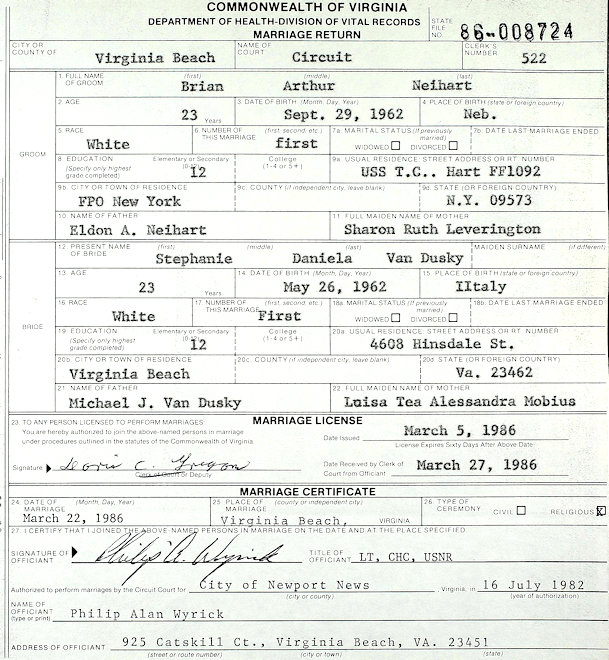 COMMONWEALTH OF VIRGINIA
DEPARTMENT OF HEALTH-DIVISION OF VITAL RECORDS
MARRIAGE RETURN
STATE FILE NO. 86-008724
CITY OR COUNTY OF Virginia Beach NAME OF COURT Circuit CLERK'S NUMBER 522
GROOM
1. FULL NAME OF GROOM (first) Brian (middle) Arthur (last) Neihart
2. AGE 23 Years 3. DATE OF BIRTH (Month, Day, Year) Sept. 29, 1962 4. PLACE OF BIRTH (state or foreign country) Neb.
5. RACE White 6. NUMBER OF THIS MARRIAGE (first, second, etc.) first 7a. MARITAL STATUS (If previously married) WIDOWED DIVORCED 7b. DATE LAST MARRIAGE ENDED
8. EDUCATION (Specify only highest grade completed) Elementary or Secondary (0-12) 12 College (1-4 or 5+) 9a. USUAL RESIDENCE: STREET ADDRESS OR RT. NUMBER USS T.C.. Hart FF1092
9b. CITY OR TOWN OF RESIDENCE FPO New York 9c. COUNTY (if independent city, leave blank) 9d. STATE (OR FOREIGN COUNTRY) N.Y. 09573
10. NAME OF FATHER Eldon A. Neihart 11. FULL MAIDEN NAME OF MOTHER Sharon Ruth Leverington
BRIDE
12. PRESENT NAME OF BRIDE (first) Stephanie (middle) Daniela (last) Van Dusky MAIDEN SURNAME (if different)
13. AGE 23 Years 14. DATE OF BIRTH (Month, Day, Year) May 26, 1962 15. PLACE OF BIRTH (state or foreign country) IItaly
16. RACE White 17. NUMBER OF THIS MARRIAGE (first, second, etc.) First 18a. MARITAL STATUS (If previously married) WIDOWED DIVORCED 18b. DATE LAST MARRIAGE ENDED
19. EDUCATION (Specify only highest grade completed) Elementary or Secondary (0-12) 12 College (1-4 or 5+) 20a. USUAL RESIDENCE: STREET ADDRESS OR RT. NUMBER 4608 Hinsdale St.
20b. CITY OR TOWN OF RESIDENCE Virginia Beach 20c. COUNTY (if independent city, leave blank) 20d. STATE (OR FOREIGN COUNTRY) Va. 23462
21. NAME OF FATHER Michael J. Van Dusky 22. FULL MAIDEN NAME OF MOTHER Luisa Tea Alessandra Mobius
MARRIAGE LICENSE
23. TO ANY PERSON LICENSED TO PERFORM MARRIAGES:
You are hereby authorized to join the above-named persons in marriage
under procedures outlined in the statutes of the Commonwealth of Virginia.
Date Issued March 5, 1986
License Expires Sixty Days After Above Date
Signature Doris C. Gregon
Clerk of Court or Deputy
Date Received by Clerk of Court from Official March 27, 1986
MARRIAGE CERTIFICATE
24. DATE OF MARRIAGE (Month, Day, Year) March 22, 1986 25. PLACE OF MARRIAGE (county or independent city) Virginia Beach, VIRGINIA 26. TYPE OF CEREMONY CIVIL RELIGIOUS X
27. I CERTIFY THAT I JOINED THE ABOVE-NAMED PERSONS IN MARRIAGE ON THE DATE AND AT THE PLACE SPECIFIED.
SIGNATURE OF OFFICIANT Philip A. Wyrick TITLE OF OFFICIANT LT, CHC, USNR
Authorized to perform marriages by the Circuit Court for City of Newport News, Virginia, in 16 July 1982
(city or county) (year of authorization)
NAME OF OFFICIANT (type or print) Philip Alan Wyrick
ADDRESS OF OFFICIANT 925 Catskill Ct., Virginia Beach, VA. 23451
(street or route number) (city or town) (state)